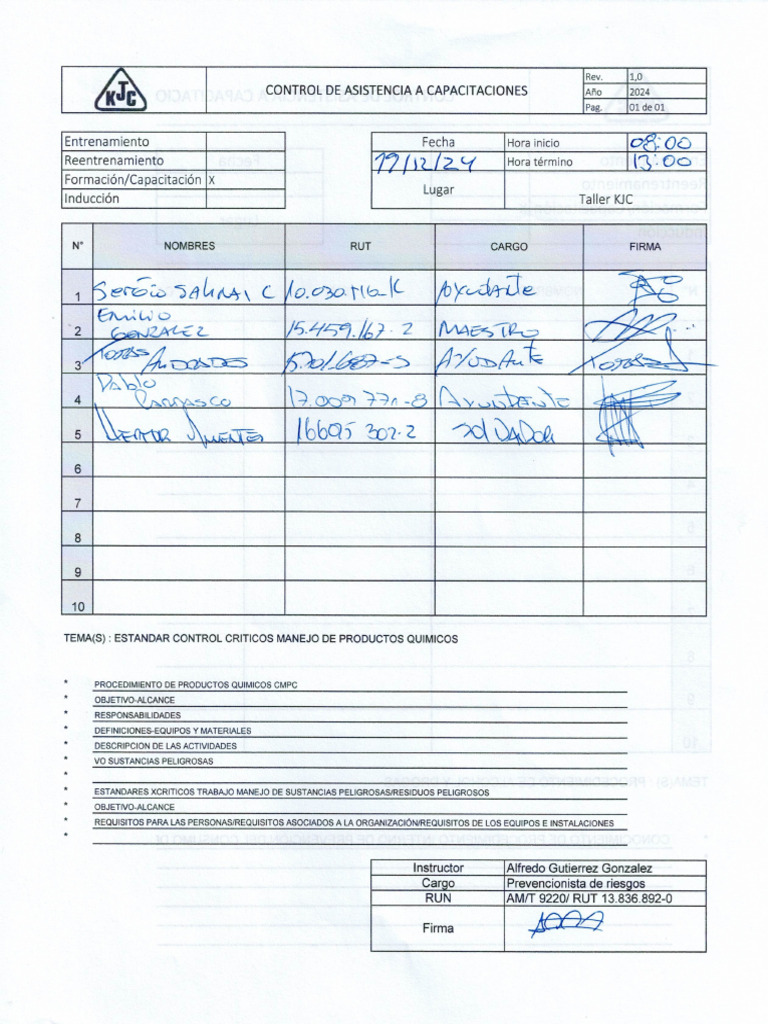 KJC
CONTROL DE ASISTENCIA A CAPACITACIONES
Rev. 1,0
Año 2024
Pag. 01 de 01
Entrenamiento
Reentrenamiento
Formación/Capacitación X
Inducción
Fecha Hora inicio 08:00
19/12/24 Hora término 13:00
Lugar Taller KJC
N° NOMBRES RUT CARGO FIRMA
1 Sergio Salinas C Ayudante
2 Emilio Gonzalez 15.459.167-2 MAESTRO
3 Tomas Andrades AYUDANTE
4 Pablo Carrasco Ayudante
5 Hector 16695 302-2 Soldador
6
7
8
9
10
TEMA(S) : ESTANDAR CONTROL CRITICOS MANEJO DE PRODUCTOS QUIMICOS
* PROCEDIMIENTO DE PRODUCTOS QUIMICOS CMPC
* OBJETIVO-ALCANCE
* RESPONSABILIDADES
* DEFINICIONES-EQUIPOS Y MATERIALES
* DESCRIPCION DE LAS ACTIVIDADES
* VO SUSTANCIAS PELIGROSAS
*
* ESTANDARES XCRITICOS TRABAJO MANEJO DE SUSTANCIAS PELIGROSAS/RESIDUOS PELIGROSOS
* OBJETIVO-ALCANCE
* REQUISITOS PARA LAS PERSONAS/REQUISITOS ASOCIADOS A LA ORGANIZACIÓN/REQUISITOS DE LOS EQUIPOS E INSTALACIONES
*
Instructor Alfredo Gutierrez Gonzalez
Cargo Prevencionista de riesgos
RUN AM/T 9220/ RUT 13.836.892-0
Firma